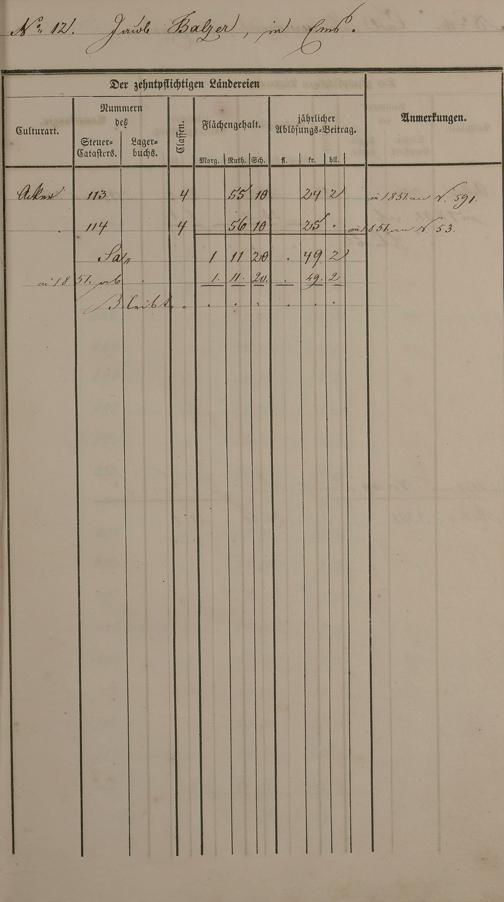 No. 12. Jacob Balzer, in Ems.
Der zehntpflichtigen Ländereien
Culturart. Nummern des Classen. Flächengehalt. jährlicher Ablösungs-Beitrag. Anmerkungen.
Steuer-Catasters. Lager-buchs.
Morg. Ruth. Sch. fl. kr. hll.
Acker 113 4 55 10 24 2 in 1851 an N. 591.
. 114 4 56 10 25 . in 1851 an N. 53.
Sa. 1 11 20 . 49 2
in 1851 ab . 1. 11. 20. . 49. 2
Bleibt. . . . . . . .